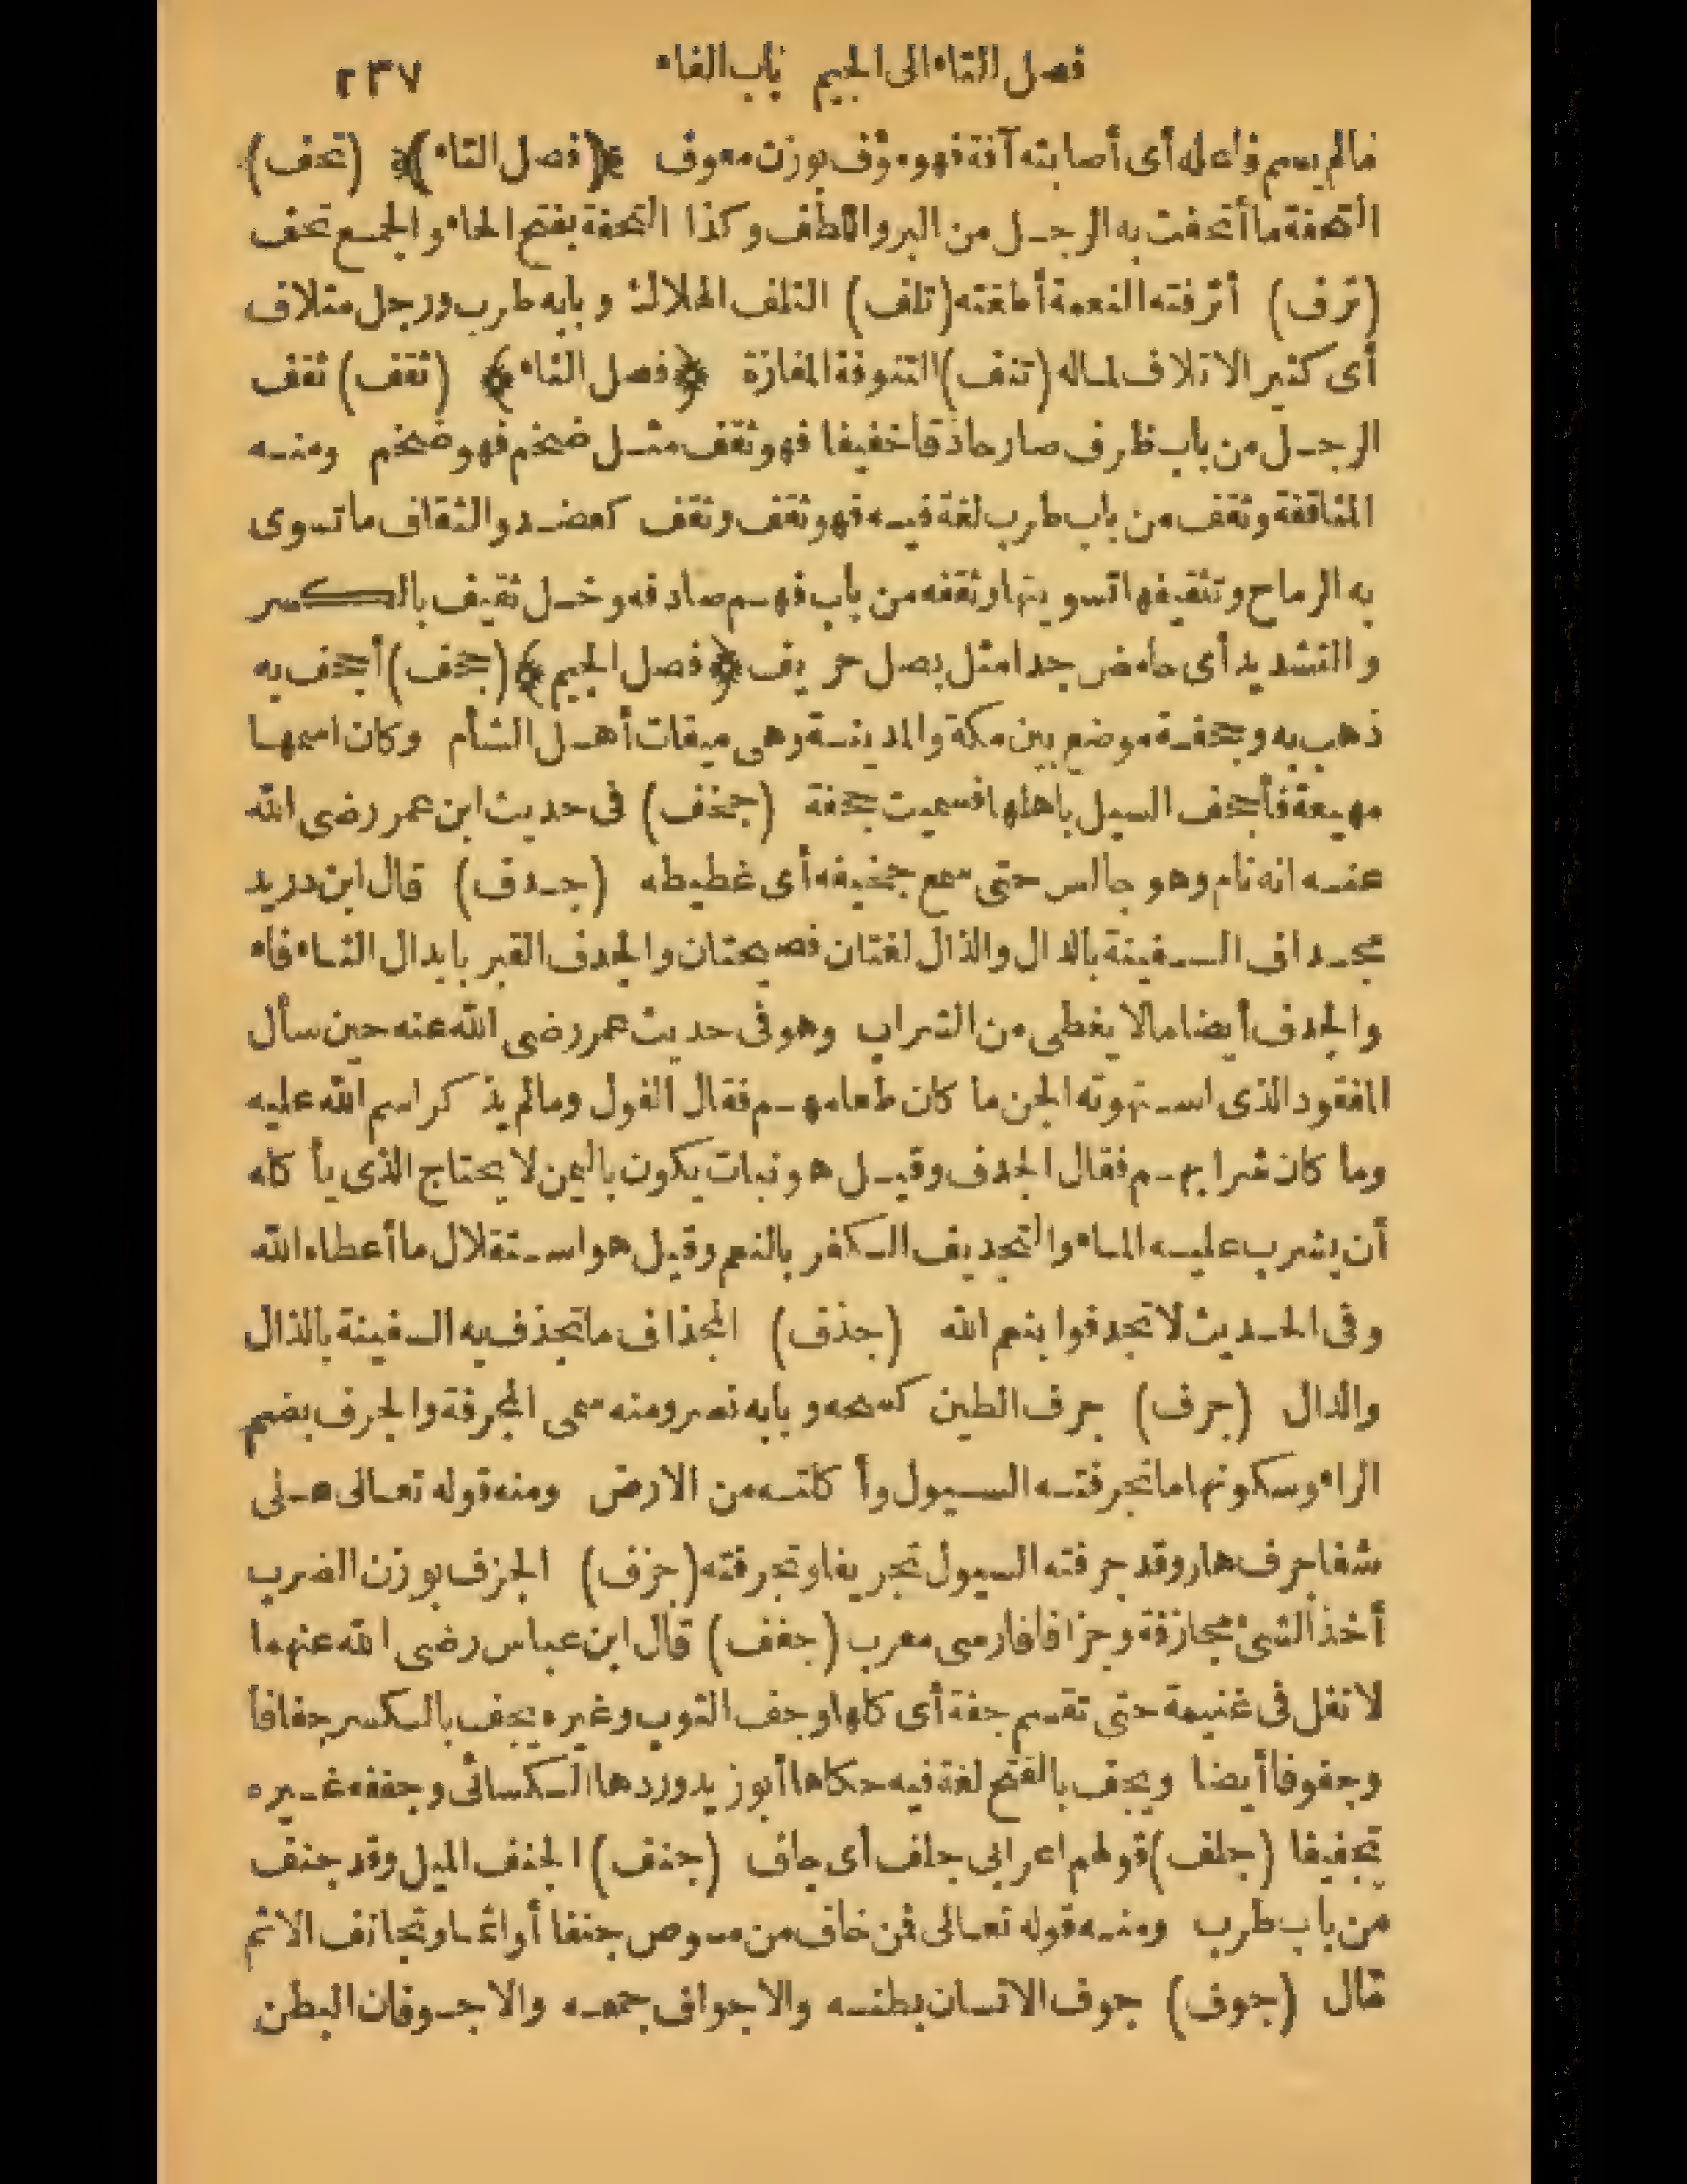 فصل التاء الى الجيم باب الفاء ٢٣٧
مالم يسم فاعله أى أصابته آفة فهو مؤف بوزن معوف ﴿(فصل التاء)﴾ (تحف)
التحفة ما أتحفت به الرجل من البر واللطف وكذا التحفة بفتح الحاء والجمع تحف
(ترف) أترفته النعمة أطغته (تلف) التلف الهلاك وبابه طرب ورجل متلاف
أى كثير الاتلاف لماله (تنف) التنوفة المفازة ﴿فصل الثاء﴾ (ثقف) ثقف
الرجل من باب ظرف صار حاذقا خفيفا فهو ثقف مثل ضخم فهو ضخم ومنه
المثاقفة وثقف من باب طرب لغة فيه فهو ثقف وثقف كعضد والثقاف ما تسوى
به الرماح وتثقيفها تسويتها وثقفه من باب فهم صادفه وخل ثقيف بالكسر
والتشديد أى حامض جدا مثل بصل حريف ﴿فصل الجيم﴾ (جحف) أجحف به
ذهب به وجحفة موضع بين مكة والمدينة وهى ميقات أهل الشأم وكان اسمها
مهيعة فأجحف السيل باهلها فسميت جحفة (جخف) فى حديث ابن عمر رضى الله
عنه انه نام وهو جالس حتى سمع جخيفه أى غطيطه (جدف) قال ابن دريد
مجداف السفينة بالدال والذال لغتان فصيحتان والجدف القبر بابدال الثاء فاء
والجدف أيضا مالا يغطى من الشراب وهو فى حديث عمر رضى الله عنه حين سأل
المفقود الذى استهوته الجن ما كان طعامهم فقال الفول ومالم يذكر اسم الله عليه
وما كان شرابهم فقال الجدف وقيل هو نبات يكون باليمن لا يحتاج الذى يأكله
أن يشرب عليه الماء والتجديف الكفر بالنعم وقيل هو استقلال ما أعطاه الله
وفى الحديث لا تجدفوا بنعم الله (جذف) المجذاف ما تجذف به السفينة بالذال
والدال (جرف) جرف الطين كسحه وبابه نصر ومنه سمى المجرفة والجرف بضم
الراء وسكونها ما تجرفته السيول وأكلته من الارض ومنه قوله تعالى على
شفا جرف هار وقد جرفته السيول تجريفا وتجرفته (جزف) الجزف بوزن الضرب
أخذ الشئ مجازفة وجزافا فارسى معرب (جفف) قال ابن عباس رضى الله عنهما
لا نفل فى غنيمة حتى تقسم جفة أى كلها وجف الثوب وغيره يجف بالكسر جفافا
وجفوفا أيضا ويجف بالفتح لغة فيه حكاها أبو زيد وردها الكسائى وجففه غيره
تجفيفا (جلف) قولهم اعرابى جلف أى جاف (جنف) الجنف الميل وقد جنف
من باب طرب ومنه قوله تعالى فمن خاف من موص جنفا أو اثما وتجانف الاثم
مال (جوف) جوف الانسان بطنه والاجواف جمعه والاجوفان البطن